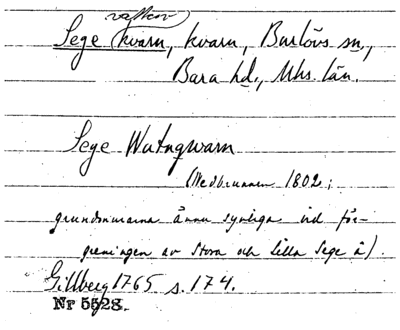 vatten
Sege kvarn, kvarn, Burlövs sn.,
Bara hd., Mhs. län.
Sege Watnqwarn
(Nedbrunnen 1802;
grundmurarna ännu synliga vid för-
greningen av Stora och Lilla Sege å).
Gillberg 1765 s. 174.
Nr 5528.